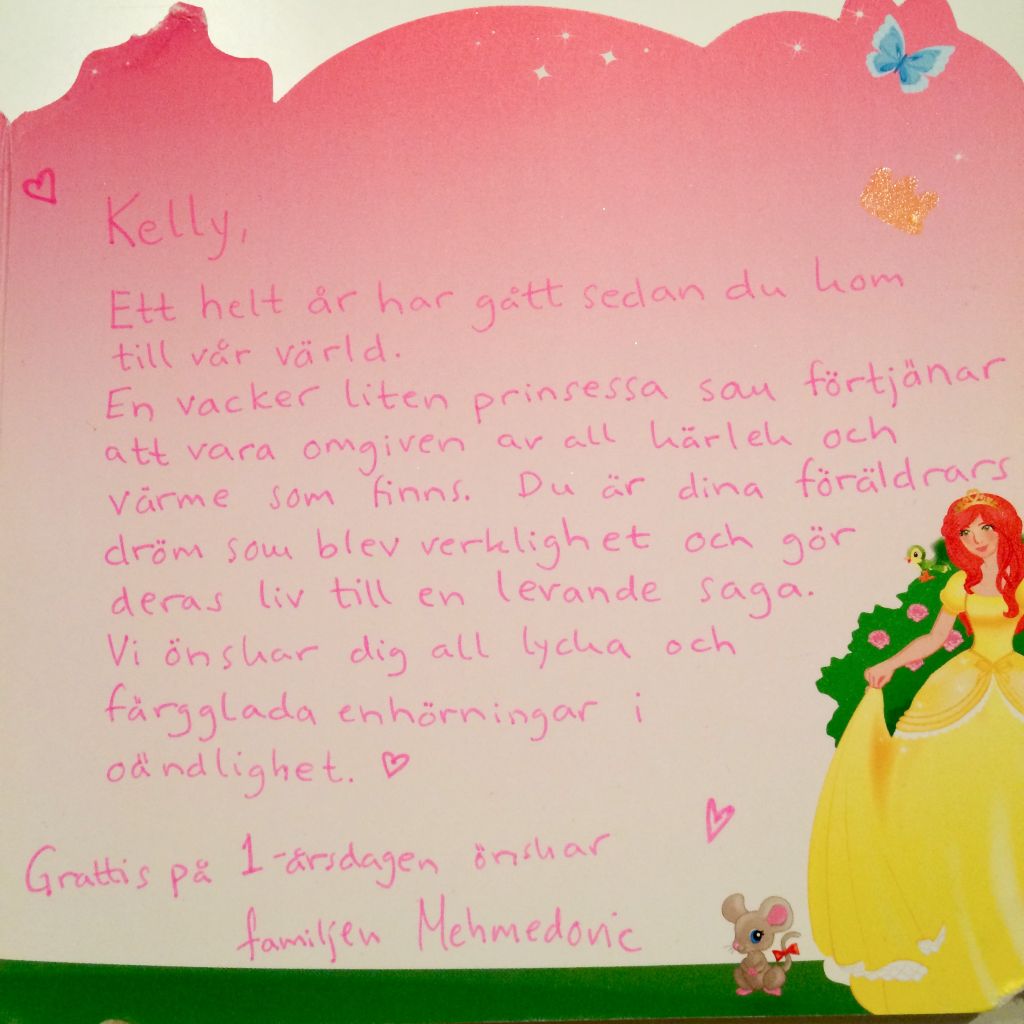 Kelly,
Ett helt år har gått sedan du kom
till vår värld.
En vacker liten prinsessa som förtjänar
att vara omgiven av all kärlek och
värme som finns. Du är dina föräldrars
dröm som blev verklighet och gör
deras liv till en levande saga.
Vi önskar dig all lycka och
färgglada enhörningar i
oändlighet. ♡
Grattis på 1-årsdagen önskar
familjen Mehmedovic